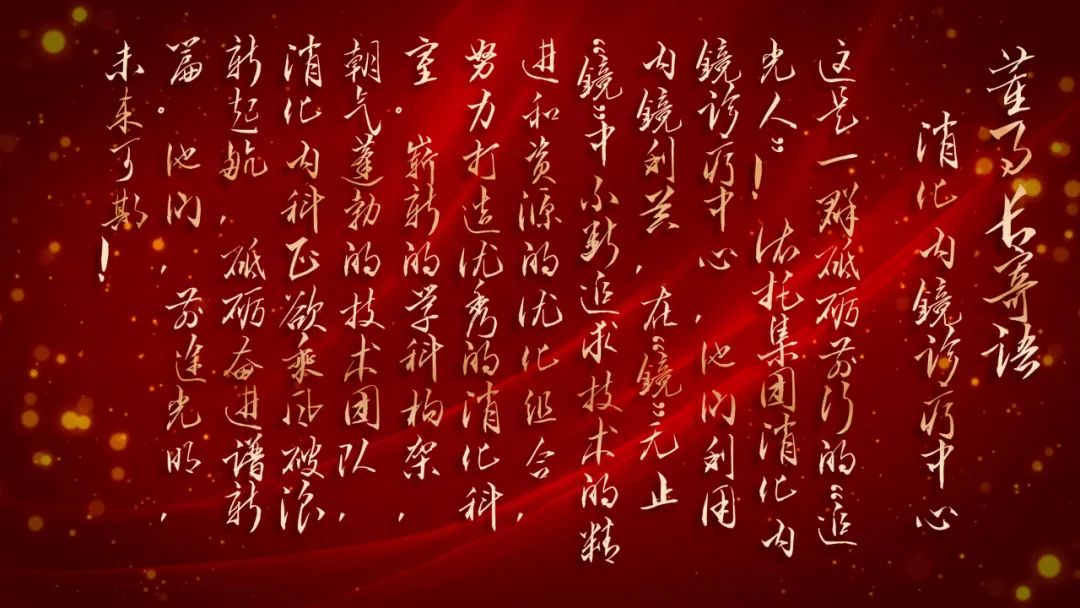 董事长寄语
消化内鏡诊疗中心
这是一群砥砺前行的“追
光人”！依托集团消化内
鏡诊疗中心，他们利用
内鏡利器，在“鏡”无止
“鏡”中不断追求技术的精
进和资源的优化组合，
努力打造优秀的消化科
室。崭新的学科构架，
朝气蓬勃的技术团队，
消化内科正欲乘风破浪
新起航，砥砺奋进谱新
篇。他们，前途光明，
未来可期！